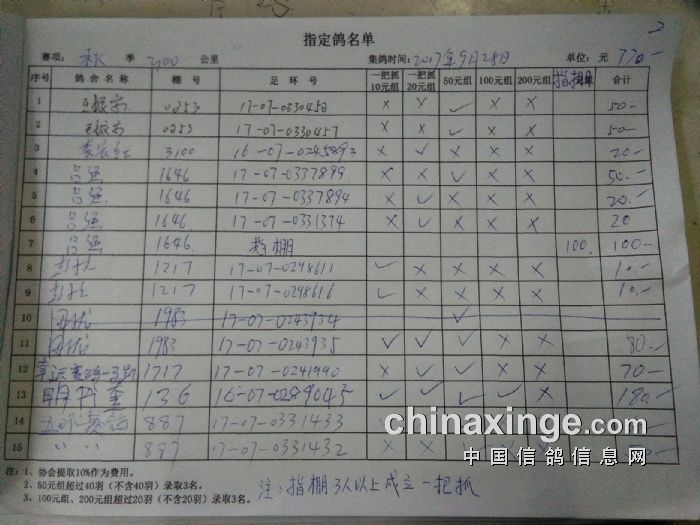 2
指定鸽名单
赛项： 秋 季 300 公里 集鸽时间：2017年9月28日 单位：元 770-
序号 鸽舍名称 棚号 足环号 一把抓10元组 一把抓20元组 50元组 100元组 200元组 指棚 合计
1 0253 17-07-0330452 × × ✓ × × 50-
2 0253 17-07-0330457 × × ✓ × × 50-
3 3100 16-07-0245893 × ✓ × × × 20-
4 吕强 1646 17-07-0337899 × × ✓ × × 50-
5 吕强 1646 17-07-0337894 × ✓ × × × 20-
6 吕强 1646 17-07-0331374 × ✓ × × × 20
7 吕强 1646 指棚 100 100-
8 1217 17-07-0298611 ✓ × × × × 10-
9 1217 17-07-0298616 ✓ × × × × 10-
10 1983 17-07-0243934 ✓
11 1983 17-07-0243935 ✓ ✓ ✓ × × 80-
12 1717 17-07-0241990 × ✓ ✓ × × 70-
13 136 16-07-0289045 ✓ ✓ ✓ ✓ × 180-
14 887 17-07-0331433
15 〃 〃 887 17-07-0331432 × × ✓ × × 50
chinaxinge.com
中国信鸽信息网
注：1、协会提取10%作为费用。
2、50元组超过40羽（不含40羽）录取3名。
3、100元组、200元组超过20羽（不含20羽）录取3名。
注：指棚3人以上成立一把抓